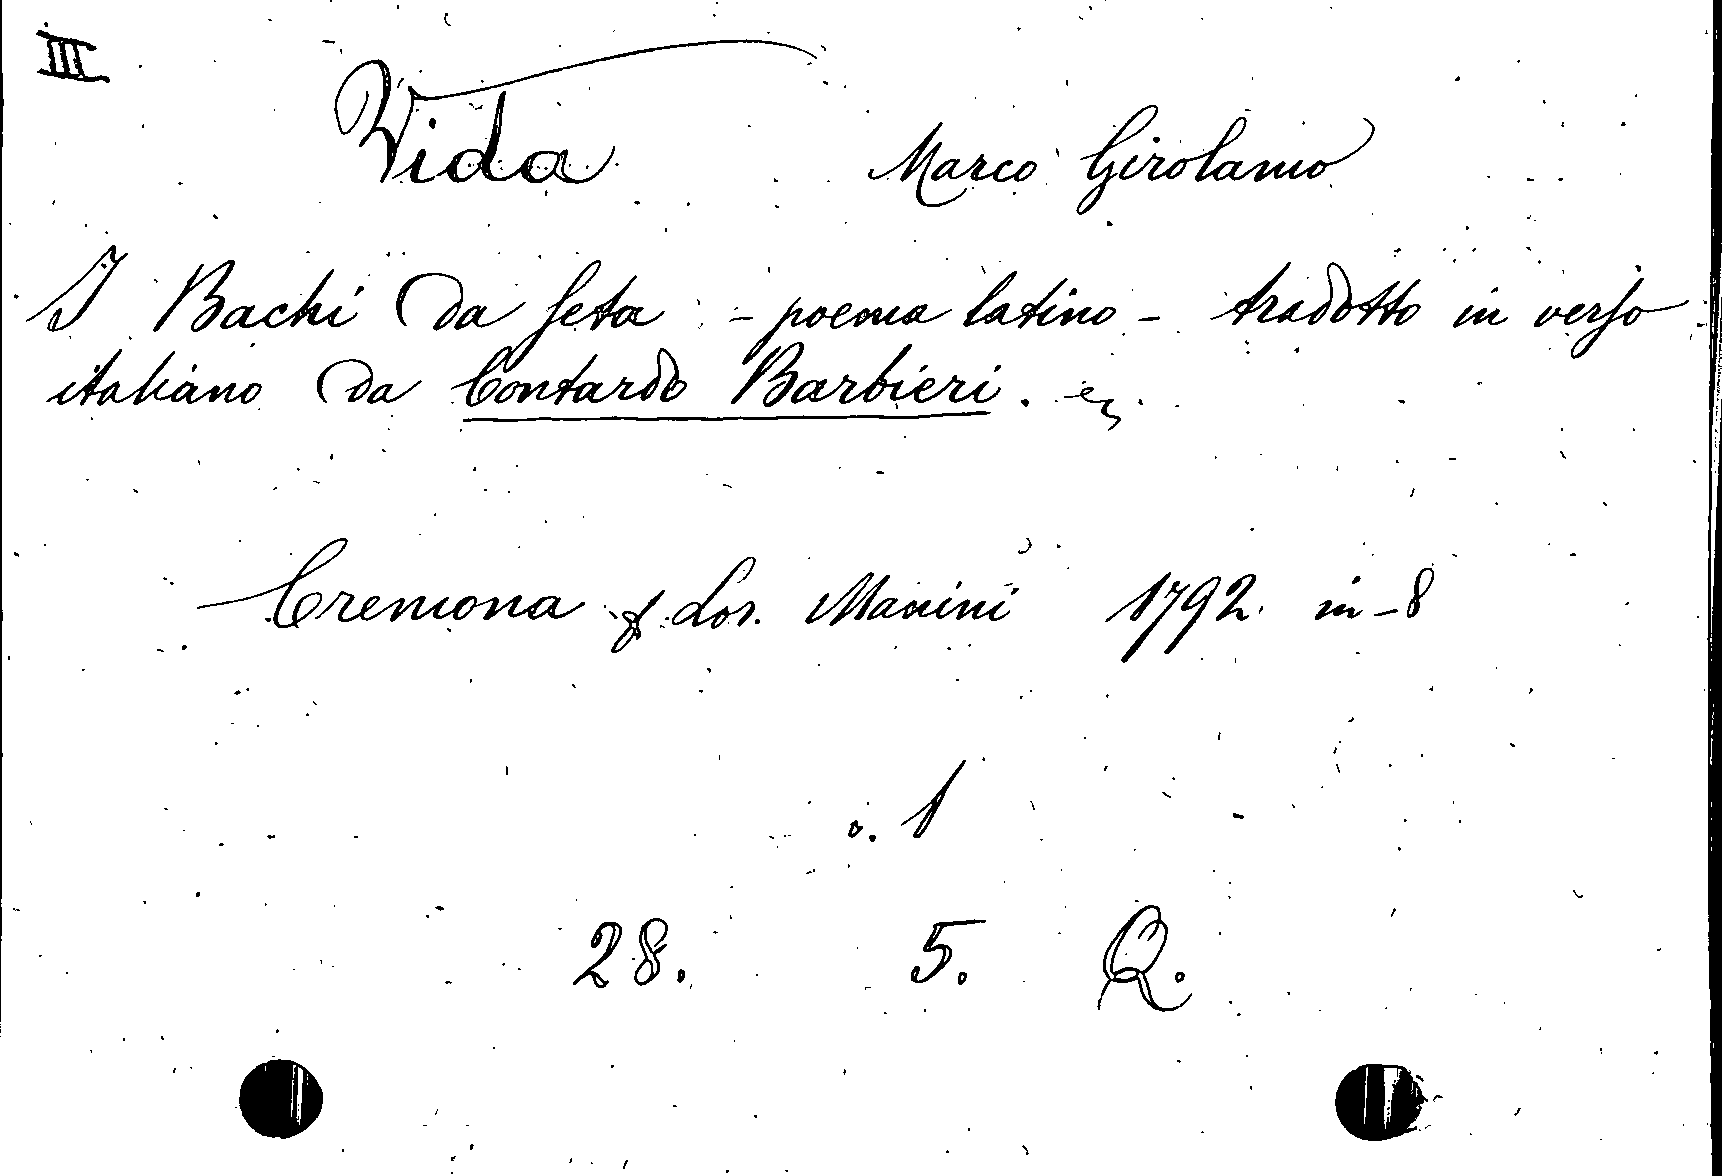 III
Vida Marco Girolamo
I Bachi da seta - poema latino - tradotto in verso
italiano da Contardo Barbieri.
Cremona Lor. Manini 1792. in-8
v. 1
28. 5. Q.